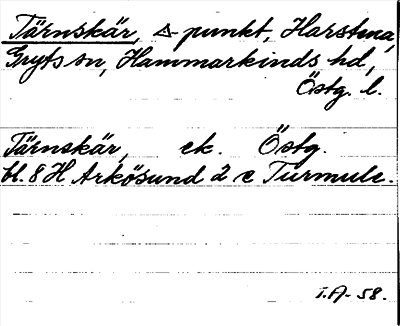 Tärnskär, △-punkt, Harstena,
Gryts sn, Hammarkinds hd,
Östg. l.
Tärnskär, ek. Östg.
bl. 8 H Arkösund 2 c Turmule.
I.A-58.